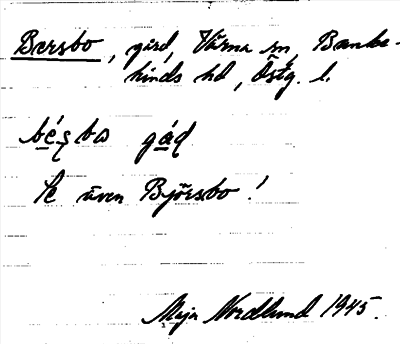 Bersbo, gård, Värna sn, Banke-
kinds hd, Östg. l.
bé̱ʂbω gá̱ɖ
Se även Björsbo!
Maja Nordlund 1945.